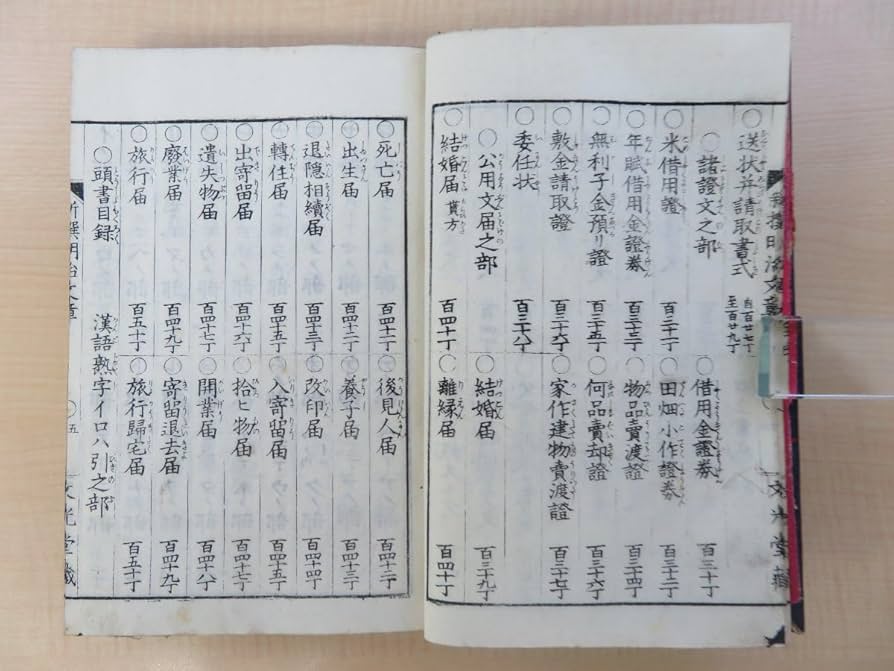 ○送状并請取書式 自百廿七丁 至百廿九丁
○諸證文之部
○借用金證券 百三十丁
○米借用證 百三十一丁
○田畑小作證券 百三十二丁
○年賦借用金證券 百三十三丁
○物品賣渡證 百三十四丁
○無利子金預リ證 百三十五丁
○何品賣却證 百三十六丁
○敷金請取證 百三十六丁
○家作建物賣渡證 百三十七丁
○委任状 百三十八丁
○公用文届之部
○結婚届 百三十九丁
○結婚届 貰方 百四十丁
○離縁届 百四十丁
○死亡届 百四十二丁
○後見人届 百四十二丁
○出生届 百四十三丁
○養子届 百四十三丁
○退隠相續届 百四十三丁
○改印届 百四十四丁
○轉住届 百四十五丁
○入寄留届 百四十五丁
○出寄留届 百四十六丁
○拾ヒ物届 百四十七丁
○遺失物届 百四十七丁
○開業届 百四十八丁
○廢業届 百四十九丁
○寄留退去届 百四十九丁
○旅行届 百五十丁
○旅行歸宅届 百五十丁
○頭書目録 漢語熟字イロハ引之部
新撰明治文章 ○五 文光堂藏